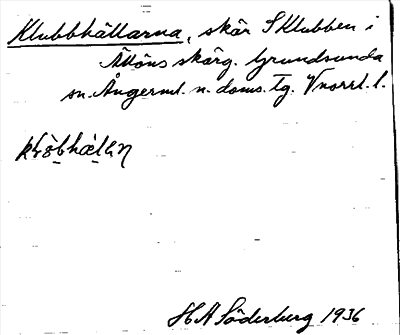 Klubbhällarna, skär S Klubben i
skärg. Grundsunda
sn. Ångerml. n. doms. tg. Vnorrl. l.
H A Söderberg 1936